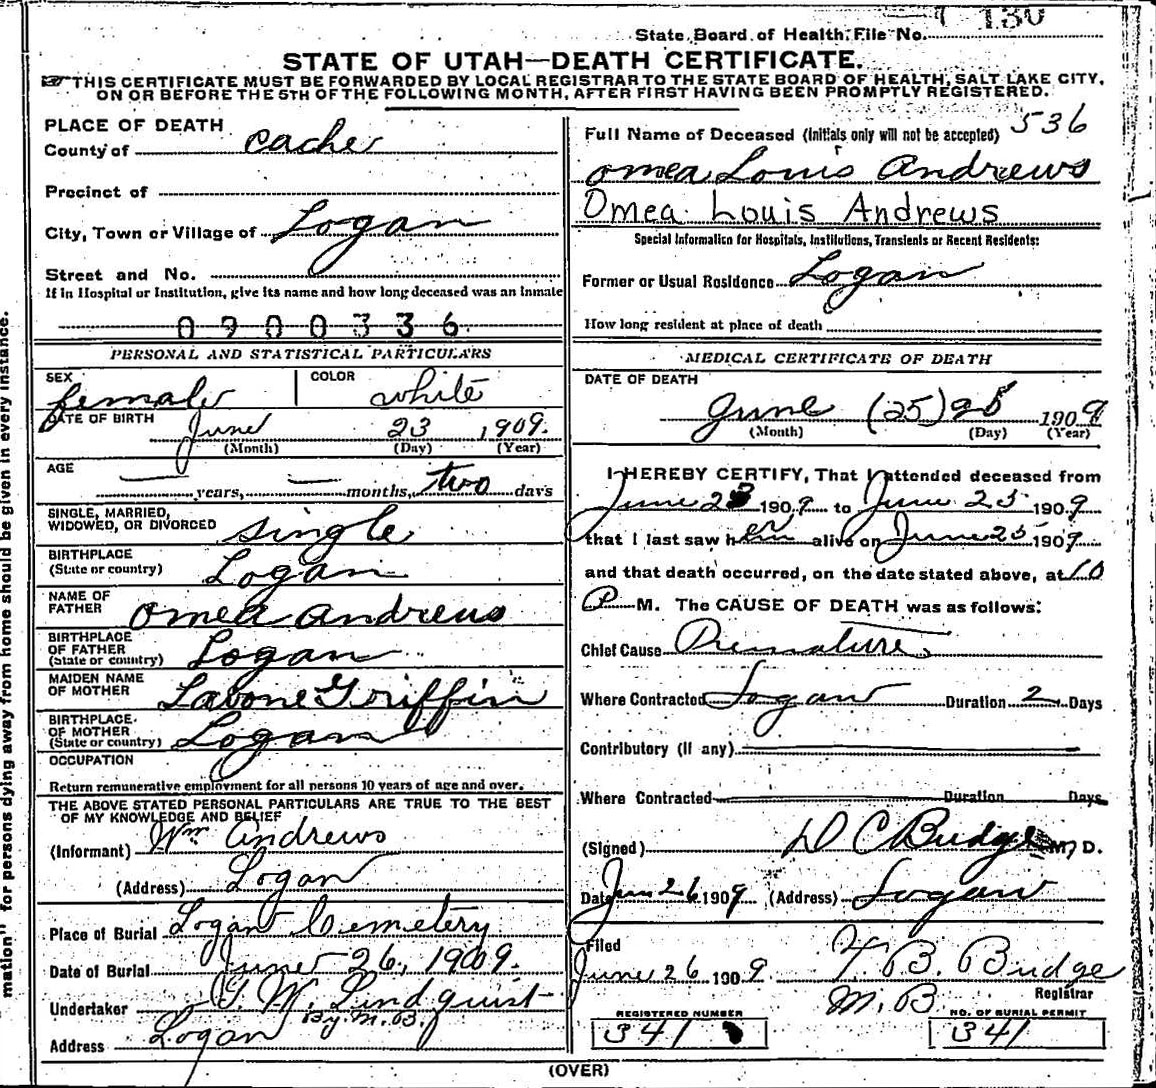 130
State Board of Health File No.
STATE OF UTAH—DEATH CERTIFICATE.
THIS CERTIFICATE MUST BE FORWARDED BY LOCAL REGISTRAR TO THE STATE BOARD OF HEALTH, SALT LAKE CITY,
ON OR BEFORE THE 5TH OF THE FOLLOWING MONTH, AFTER FIRST HAVING BEEN PROMPTLY REGISTERED.
PLACE OF DEATH
County of Cache
Precinct of
City, Town or Village of Logan
Street and No.
If in Hospital or Institution, give its name and how long deceased was an inmate
0900336
PERSONAL AND STATISTICAL PARTICULARS
SEX female COLOR white
DATE OF BIRTH June 23, 1909.
(Month) (Day) (Year)
AGE — years, — months, two days
SINGLE, MARRIED,
WIDOWED, OR DIVORCED single
BIRTHPLACE
(State or country) Logan
NAME OF
FATHER Omea Andrews
BIRTHPLACE
OF FATHER
(State or country) Logan
MAIDEN NAME
OF MOTHER Lavone Griffin
BIRTHPLACE
OF MOTHER
(State or country) Logan
OCCUPATION
Return remunerative employment for all persons 10 years of age and over.
THE ABOVE STATED PERSONAL PARTICULARS ARE TRUE TO THE BEST
OF MY KNOWLEDGE AND BELIEF
(Informant) Wm Andrews
(Address) Logan
Place of Burial Logan Cemetery
Date of Burial June 26, 1909.
Undertaker T. W. Lindquist
By M. B.
Address Logan
Full Name of Deceased (Initials only will not be accepted) 536
Omea Louis Andrews
Omea Louis Andrews
Special Information for Hospitals, Institutions, Transients or Recent Residents:
Former or Usual Residence Logan
How long resident at place of death
MEDICAL CERTIFICATE OF DEATH
DATE OF DEATH
June (25) 25 1909
(Month) (Day) (Year)
I HEREBY CERTIFY, That I attended deceased from
June 23 1909 to June 25 1909
that I last saw her alive on June 25 1909
and that death occurred, on the date stated above, at 10
P M. The CAUSE OF DEATH was as follows:
Chief Cause Premature
Where Contracted Logan Duration 2 Days
Contributory (If any)
Where Contracted Duration Days
(Signed) D C Budge M. D.
Date Jun 26 1909 (Address) Logan
Filed
June 26 1909. T. B. Budge
M. B Registrar
REGISTERED NUMBER NO. OF BURIAL PERMIT
341 341
(OVER)
for persons dying away from home should be given in every instance.
mation"